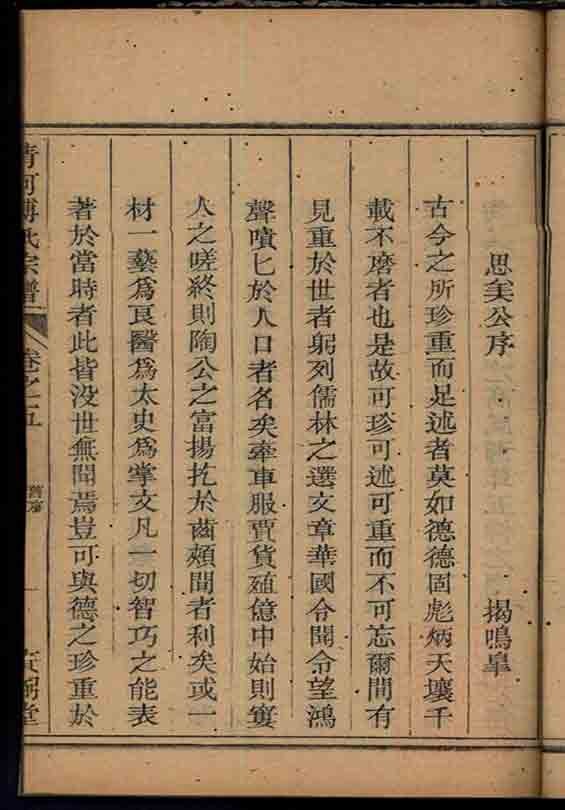 思矣公序 揭鳴皐
古今之所珍重而足述者莫如德德固彪炳天壤千
載不磨者也是故可珍可述可重而不可忘爾間有
見重於世者躬列儒林之選文章華國令聞令望鴻
聲噴匕於人口者名矣牽車服賈貨殖億中始則窶
人之嗟終則陶公之富揚扢於齒頰間者利矣或一
材一藝爲良醫爲太史爲掌文凡一切智巧之能表
著於當時者此皆没世無聞焉豈可與德之珍重於
清河傅氏宗譜 卷之五 舊序 一